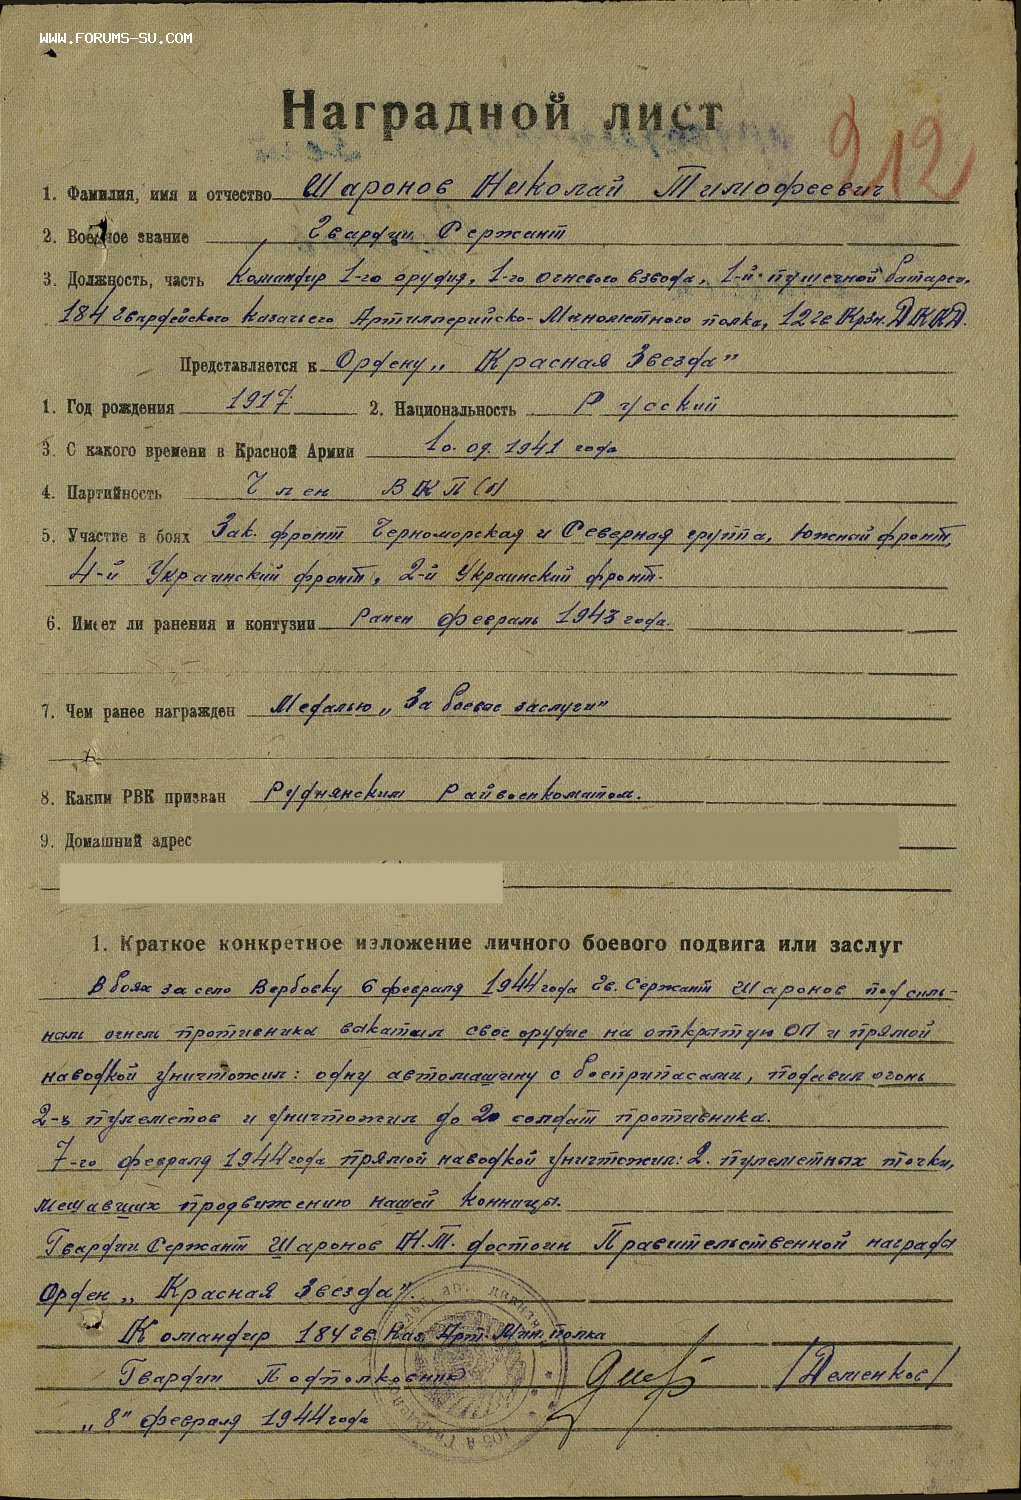 WWW.FORUMS-SU.COM
Наградной лист
212
1. Фамилия, имя и отчество Шаронов Николай Тимофеевич
2. Военное звание Гвардии Сержант
3. Должность, часть Командир 1-го орудия, 1-го огневого взвода, 1-й пушечной батареи,
184 Гвардейского Казачьего Артиллерийско-Минометного полка, 12 Гв Крзн. ДККД.
Представляется к Ордену „Красная Звезда"
1. Год рождения 1917 2. Национальность Русский
3. С какого времени в Красной Армии 1941 года
4. Партийность Член ВКП(б)
5. Участие в боях Зак. фронт Черноморская и Северная группа, Южный фронт,
4-й Украинский фронт, 2-й Украинский фронт.
6. Имеет ли ранения и контузии Ранен февраль 1943 года.
7. Чем ранее награжден Медалью „За боевые заслуги"
8. Каким РВК призван Руднянским Райвоенкоматом.
9. Домашний адрес
1. Краткое конкретное изложение личного боевого подвига или заслуг
В боях за село Вербовку 6 февраля 1944 года Гв. Сержант Шаронов под силь-
ным огнем противника выкатил свое орудие на открытую ОП и прямой
наводкой уничтожил: одну автомашину с боеприпасами, подавил огонь
2-х пулеметов и уничтожил до 20 солдат противника.
7-го февраля 1944 года прямой наводкой уничтожил: 2 пулеметных точки,
мешавших продвижению нашей конницы.
Гвардии Сержант Шаронов Н.Т. достоин Правительственной награды
Орден „Красная Звезда".
Командир 184 Гв. Каз. Арт. Мин. полка
Гвардии Подполковник /Деменков/
„8" февраля 1944 года